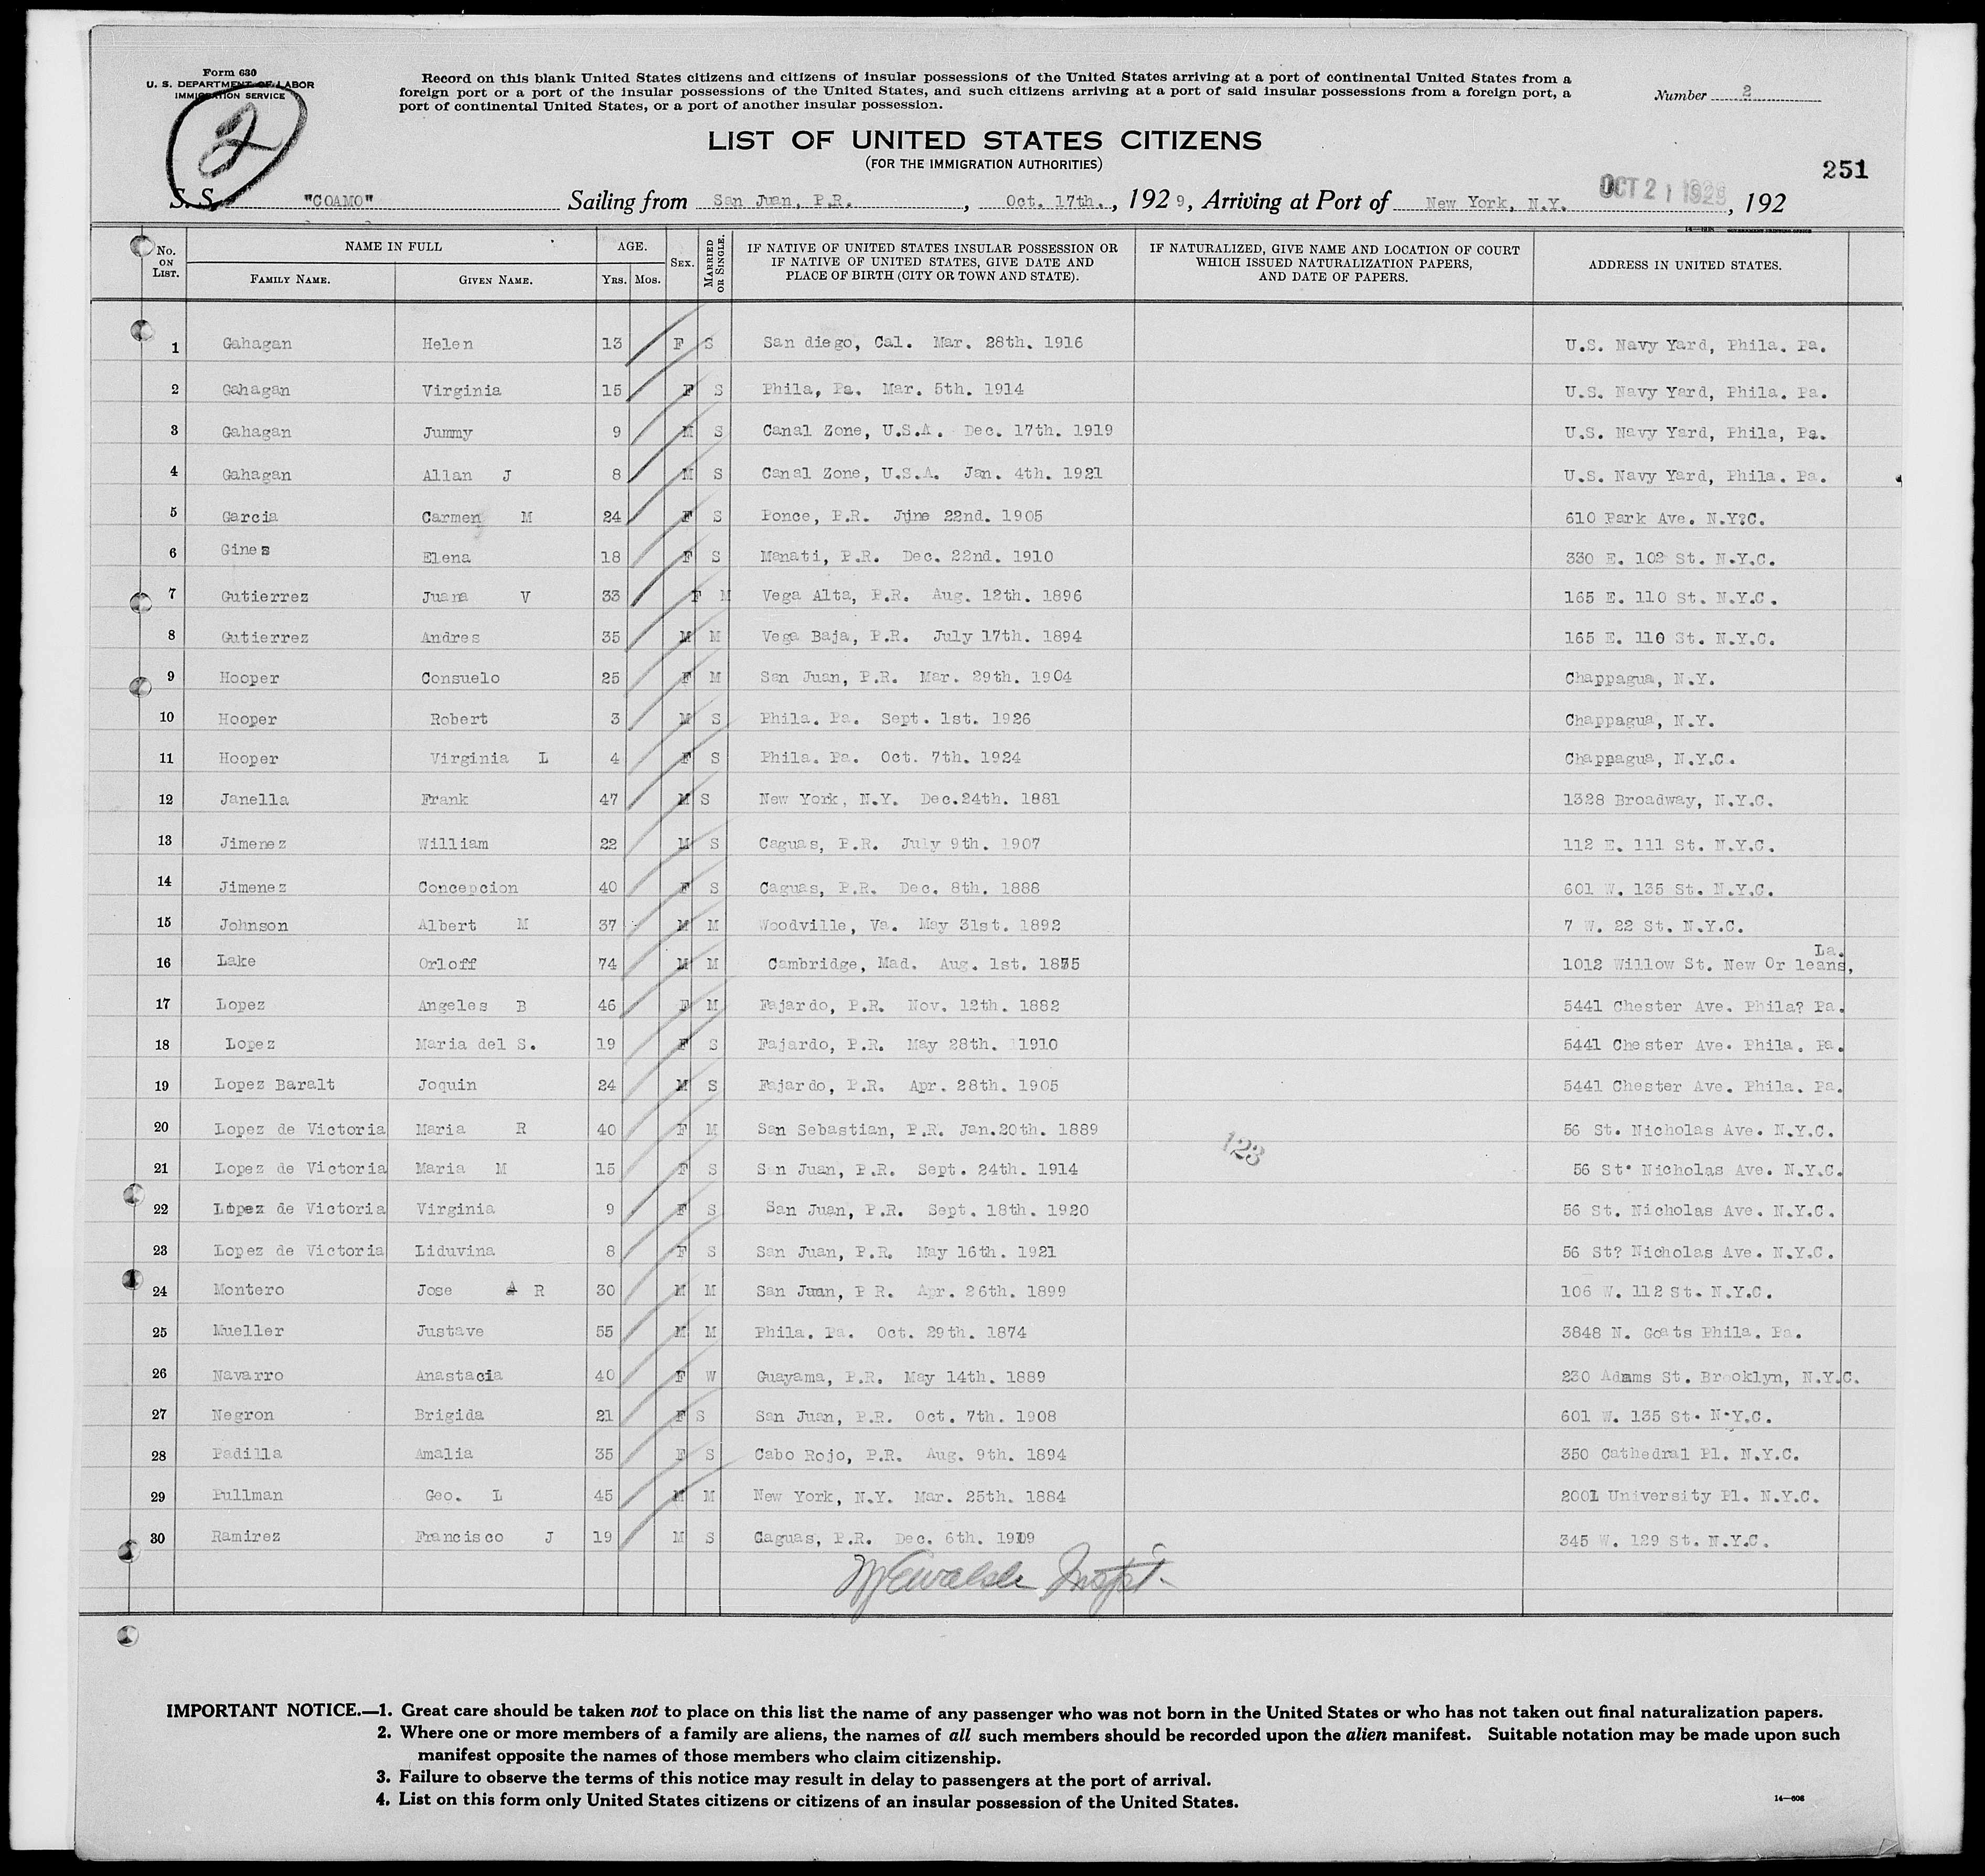 Form 630
U. S. DEPARTMENT OF LABOR
IMMIGRATION SERVICE
2
Record on this blank United States citizens and citizens of insular possessions of the United States arriving at a port of continental United States from a
foreign port or a port of the insular possessions of the United States, and such citizens arriving at a port of said insular possessions from a foreign port, a
port of continental United States, or a port of another insular possession.
Number 2
LIST OF UNITED STATES CITIZENS
(FOR THE IMMIGRATION AUTHORITIES)
251
S. S. "COAMO" Sailing from San Juan, P.R. , Oct. 17th. , 1929, Arriving at Port of New York, N.Y. OCT 21 1929 , 192
No. ON LIST. NAME IN FULL FAMILY NAME. GIVEN NAME. AGE. YRS. MOS. SEX. MARRIED OR SINGLE. IF NATIVE OF UNITED STATES INSULAR POSSESSION OR IF NATIVE OF UNITED STATES, GIVE DATE AND PLACE OF BIRTH (CITY OR TOWN AND STATE). IF NATURALIZED, GIVE NAME AND LOCATION OF COURT WHICH ISSUED NATURALIZATION PAPERS, AND DATE OF PAPERS. ADDRESS IN UNITED STATES.
1 Gahagan Helen 13 F S San diego, Cal. Mar. 28th. 1916 U.S. Navy Yard, Phila. Pa.
2 Gahagan Virginia 15 F S Phila, Pa. Mar. 5th. 1914 U.S. Navy Yard, Phila. Pa.
3 Gahagan Jummy 9 M S Canal Zone, U.S.A. Dec. 17th. 1919 U.S. Navy Yard, Phila, Pa.
4 Gahagan Allan J 8 M S Canal Zone, U.S.A. Jan. 4th. 1921 U.S. Navy Yard, Phila. Pa.
5 Garcia Carmen M 24 F S Ponce, P.R. June 22nd. 1905 610 Park Ave. N.Y?C.
6 Gines Elena 18 F S Manati, P.R. Dec. 22nd. 1910 330 E. 102 St. N.Y.C.
7 Gutierrez Juana V 33 F M Vega Alta, P.R. Aug. 12th. 1896 165 E. 110 St. N.Y.C.
8 Gutierrez Andres 35 M M Vega Baja, P.R. July 17th. 1894 165 E. 110 St. N.Y.C.
9 Hooper Consuelo 25 F M San Juan, P.R. Mar. 29th. 1904 Chappagua, N.Y.
10 Hooper Robert 3 M S Phila. Pa. Sept. 1st. 1926 Chappagua, N.Y.
11 Hooper Virginia L 4 F S Phila. Pa. Oct. 7th. 1924 Chappagua, N.Y.C.
12 Janella Frank 47 M S New York, N.Y. Dec.24th. 1881 1328 Broadway, N.Y.C.
13 Jimenez William 22 M S Caguas, P.R. July 9th. 1907 112 E. 111 St. N.Y.C.
14 Jimenez Concepcion 40 F S Caguas, P.R. Dec. 8th. 1888 601 W. 135 St. N.Y.C.
15 Johnson Albert M 37 M M Woodville, Va. May 31st. 1892 7 W. 22 St. N.Y.C.
16 Lake Orloff 74 M M Cambridge, Mad. Aug. 1st. 1855 1012 Willow St. New Or leans, La.
17 Lopez Angeles B 46 F M Fajardo, P.R. Nov. 12th. 1882 5441 Chester Ave. Phila? Pa.
18 Lopez Maria del S. 19 F S Fajardo, P.R. May 28th. 1910 5441 Chester Ave. Phila. Pa.
19 Lopez Baralt Joquin 24 M S Fajardo, P.R. Apr. 28th. 1905 5441 Chester Ave. Phila. Pa.
20 Lopez de Victoria Maria R 40 F M San Sebastian, P.R. Jan.20th. 1889 123 56 St. Nicholas Ave. N.Y.C.
21 Lopez de Victoria Maria M 15 F S San Juan, P.R. Sept. 24th. 1914 56 St. Nicholas Ave. N.Y.C.
22 Lopez de Victoria Virginia 9 F S San Juan, P.R. Sept. 18th. 1920 56 St. Nicholas Ave. N.Y.C.
23 Lopez de Victoria Liduvina 8 F S San Juan, P.R. May 16th. 1921 56 St? Nicholas Ave. N.Y.C.
24 Montero Jose A R 30 M M San Juan, P R. Apr. 26th. 1899 106 W. 112 St. N.Y.C.
25 Mueller Justave 55 M M Phila. Pa. Oct. 29th. 1874 3848 N. Goats Phila. Pa.
26 Navarro Anastacia 40 F W Guayama, P.R. May 14th. 1889 230 Adams St. Brooklyn, N.Y.C.
27 Negron Brigida 21 F S San Juan, P.R. Oct. 7th. 1908 601 W. 135 St. N.Y.C.
28 Padilla Amalia 35 F S Cabo Rojo, P.R. Aug. 9th. 1894 350 Cathedral Pl. N.Y.C.
29 Pullman Geo. L 45 M M New York, N.Y. Mar. 25th. 1884 2001 University Pl. N.Y.C.
30 Ramirez Francisco J 19 M S Caguas, P.R. Dec. 6th. 1909 345 W. 129 St. N.Y.C.
IMPORTANT NOTICE.—1. Great care should be taken not to place on this list the name of any passenger who was not born in the United States or who has not taken out final naturalization papers.
2. Where one or more members of a family are aliens, the names of all such members should be recorded upon the alien manifest. Suitable notation may be made upon such
manifest opposite the names of those members who claim citizenship.
3. Failure to observe the terms of this notice may result in delay to passengers at the port of arrival.
4. List on this form only United States citizens or citizens of an insular possession of the United States.
14—608